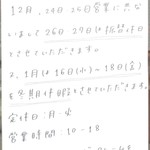 12月、24日・25日営業に共な
いまして 26日 27日は振替休日
とさせていただきます。
又、1月は 16日(水)〜18日(金)
を冬期休暇とさせていただきます。
定休日:月・火
営業時間:10-18